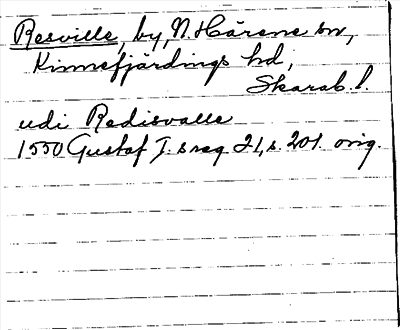 Resville, by, N. Härene sn,
Kinnefjärdings hd,
Skarab. l.
udi Redisvalle
1550 Gustaf I:s reg 21, s. 201. orig.